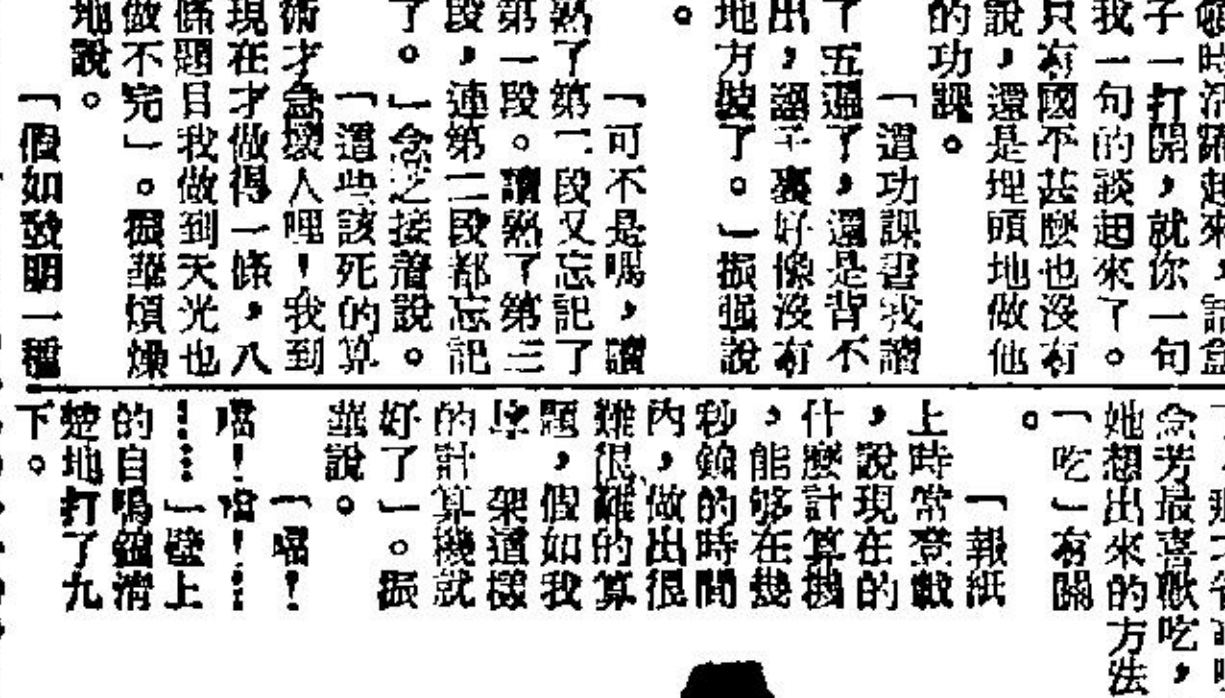 時活躍起來，話盒
子一打開，就你一句
我一句的談起來了。
只有國平甚麼也沒有
說，還是埋頭地做他
的功課。
「這功課書我讀
了五遍了，還是背不
出，腦子裏好像沒有
地方裝了。」振強說
。
「可不是嗎，讀
熟了第二段又忘記了
第一段。讀熟了第三
段，連第二段都忘記
了。」念芝接着說。
「這些該死的算
術才急壞人哩！我到
現在才做得一條，八
條題目我做到天光也
做不完」。振華煩燥
地說。
「假如發明一種
念芳最喜歡吃，
她想出來的方法
「吃」有關
。
「報紙
上時常登載
，說現在的
什麼計算機
，能够在幾
秒鐘的時間
內，做出很
難很難的算
題，假如我
架這樣
的計算機就
好了」。振
華說。
「噹！
噹！噹！…
！……」壁上
的自鳴鐘清
楚地打了九
下。